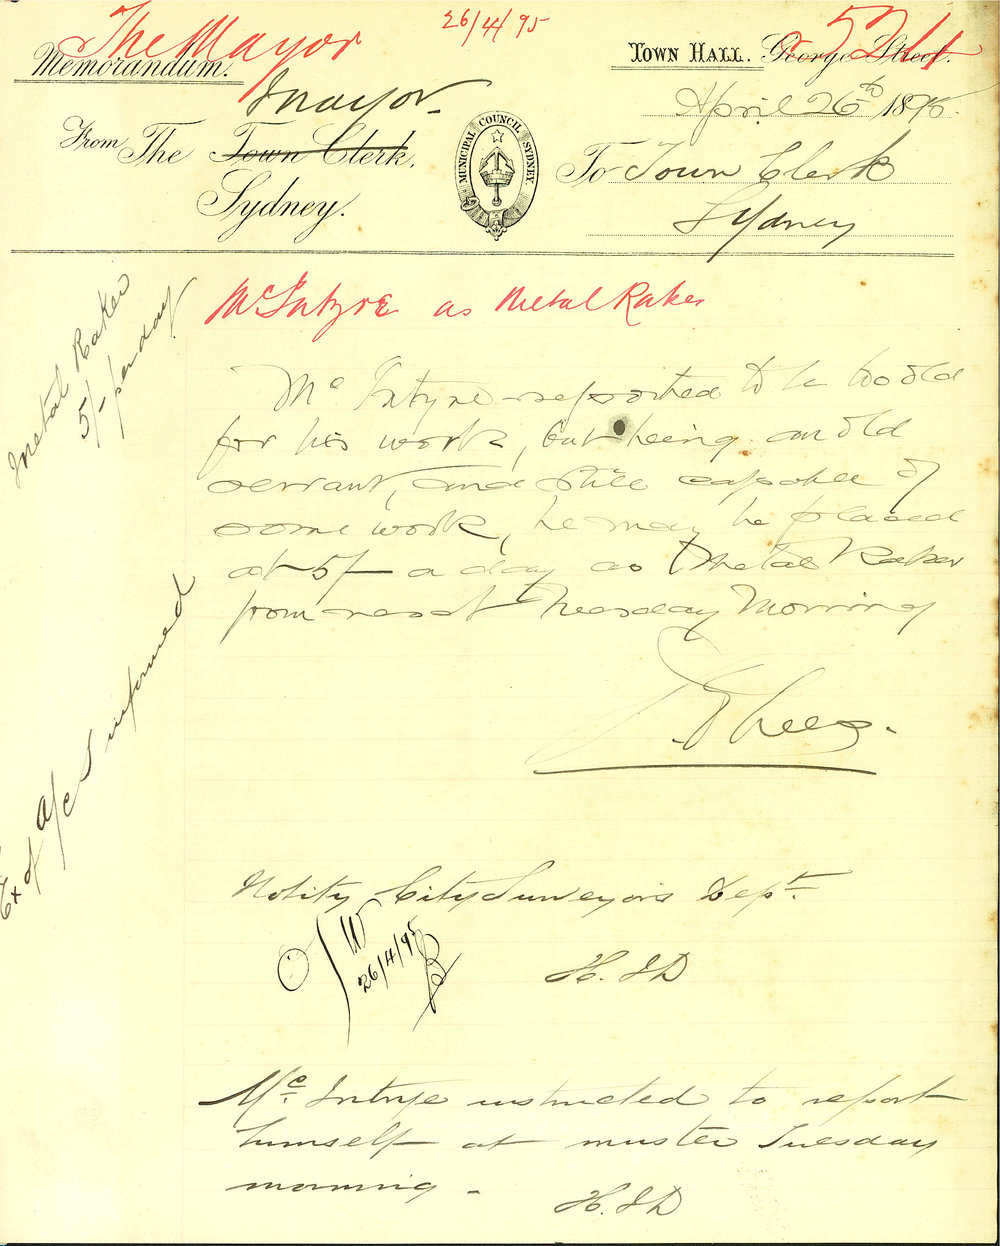 The Mayor
26/4/95
Memorandum.
Town Hall. George Street.
April 26th 1895.
From The Town Clerk,
Mayor.
Sydney.
MUNICIPAL COUNCIL SYDNEY.
To Town Clerk
Sydney
McIntyre as Metal Raker
Metal Raker
5/- per day
McIntyre reported to be too old
for his work, but being an old
servant, and still capable of
some work, he may be placed
at 5/- a day as Metal Raker
from next Tuesday Morning
Lees.
Ex of A/cs informed
Notify City Surveyor's Dept.
26/4/95
H.
Mc Intyre instructed to report
himself at muster Tuesday
morning.
H.